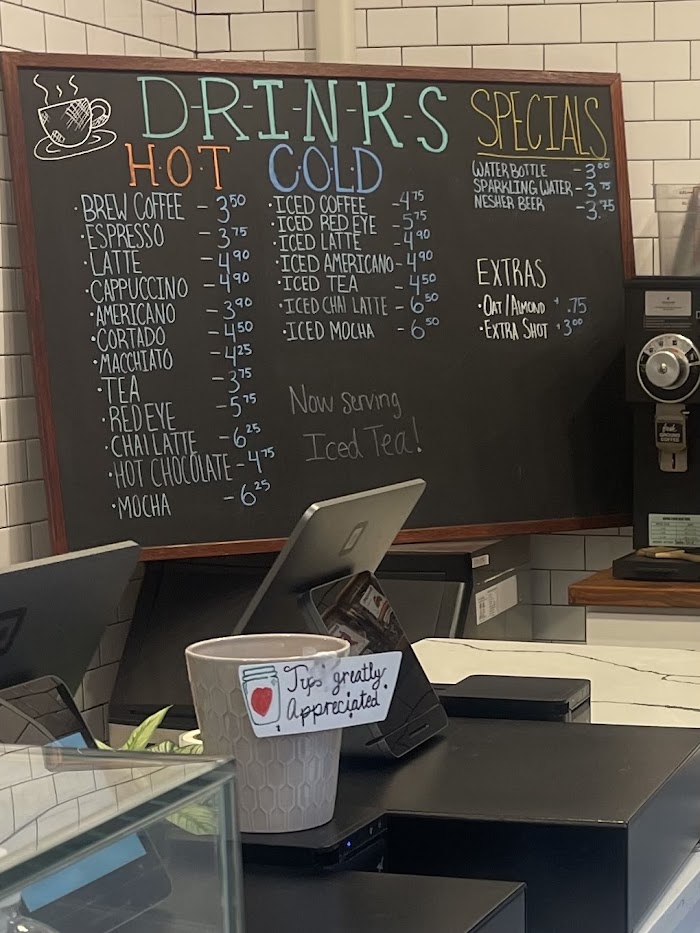 D-R-I-N-K-S
HOT
· BREW COFFEE - 3.50
· ESPRESSO - 3.75
· LATTE - 4.90
· CAPPUCCINO - 4.90
· AMERICANO - 3.90
· CORTADO - 4.50
· MACCHIATO - 4.25
· TEA - 3.75
· RED EYE - 5.75
· CHAI LATTE - 6.25
· HOT CHOCOLATE - 4.75
· MOCHA - 6.25
COLD
· ICED COFFEE - 4.75
· ICED RED EYE - 5.75
· ICED LATTE - 4.90
· ICED AMERICANO - 4.90
· ICED TEA - 4.50
· ICED CHAI LATTE - 6.50
· ICED MOCHA - 6.50
Now serving
Iced Tea!
SPECIALS
WATER BOTTLE - 3.00
SPARKLING WATER - 3.75
NESHER BEER - 3.75
EXTRAS
· OAT/ALMOND + .75
· EXTRA SHOT + 3.00
Tips greatly
Appreciated
GROUND
COFFEE